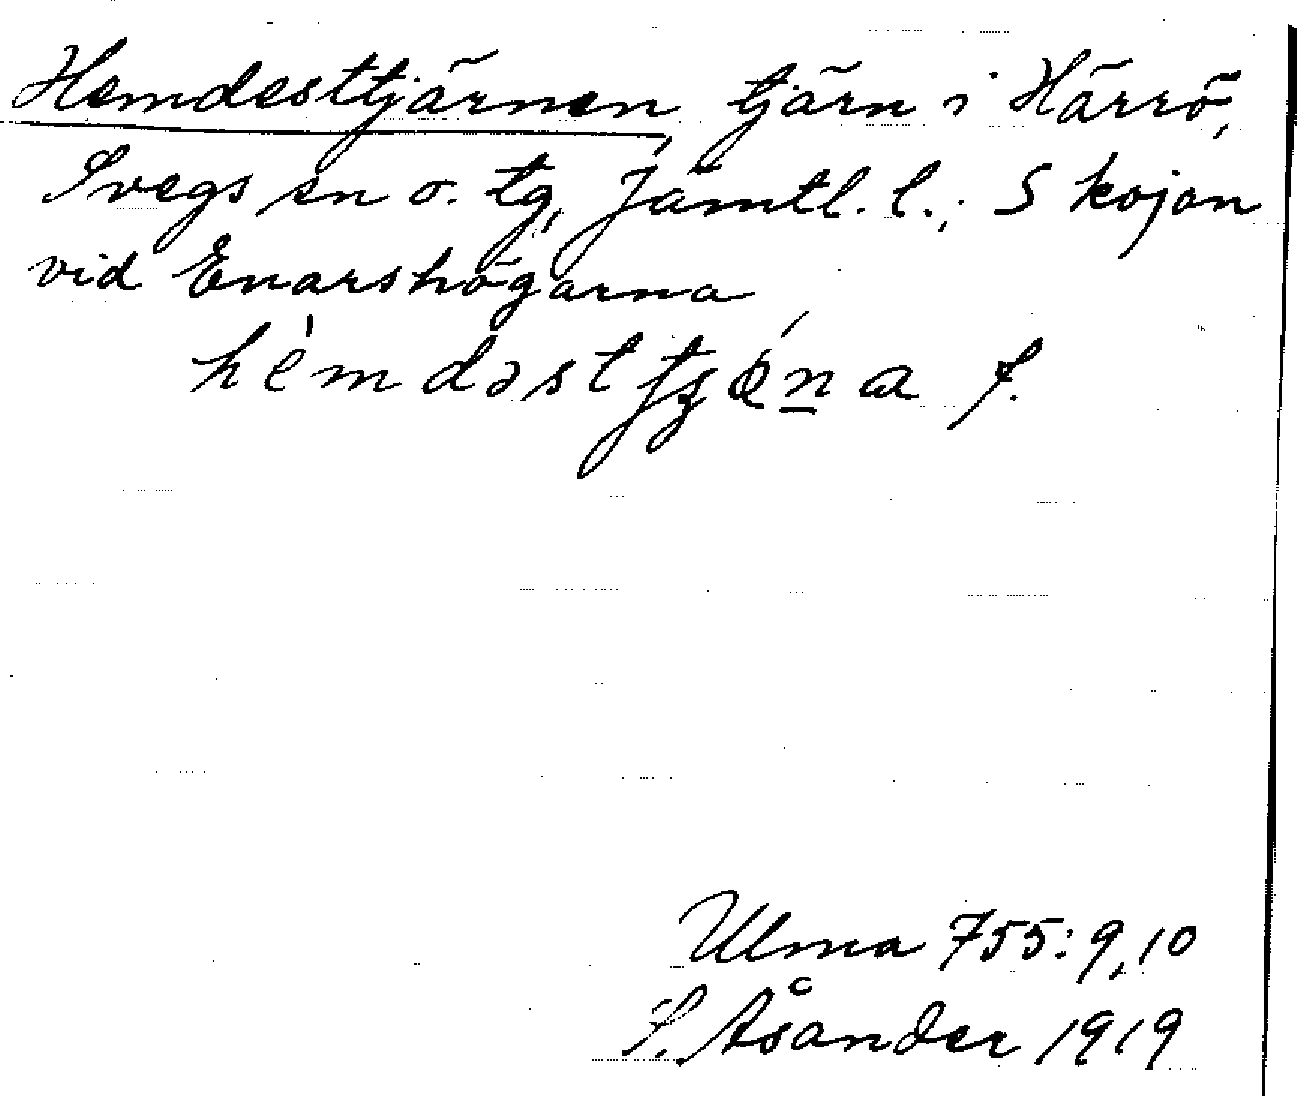 Hemdesttjärnen, tjärn i Härrö,
Svegs sn o. tg, Jämtl. l.; S kojan
vid Enarshögarna
hè̀mdəsttʂǿn̲a f.
Ulma 755:9,10
S. Åsander 1919